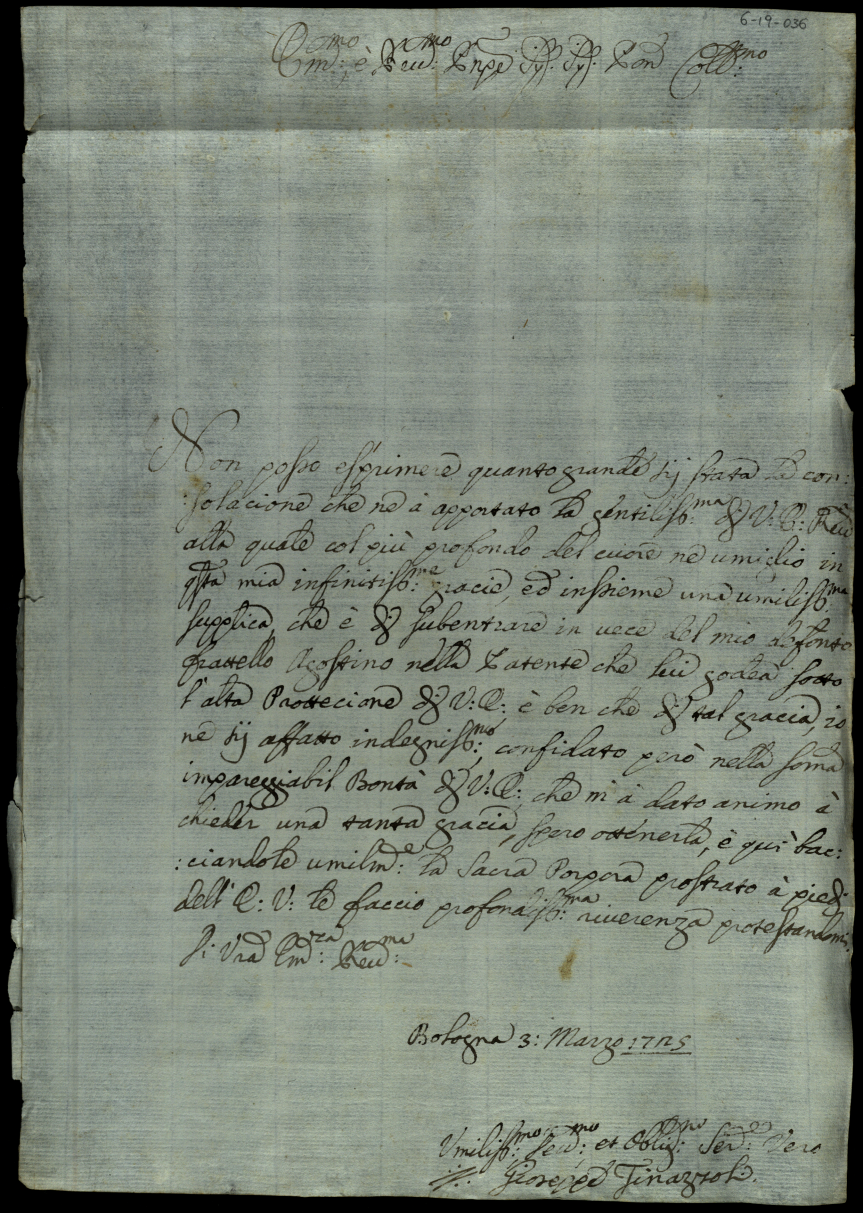 6-19-036
Em:mo è Reud:mo Pnpe Sig: Sig: Pron Coll:mo
Non posso esprimere quanto grande sij stata la con:
:solacione che ne à apportato la gentiliss:ma di V: E: Reud
alla quale col più profondo del cuore ne umiglio in
qsta mia infinitiss:me gracie, ed inssieme una umiliss:ma
supplica, che è di subentrare in uece del mio defonto
frattello Agostino nella Patente che lui godea sotto
l'alta Prottecione di V: E:, è ben che di tal gracia, io
ne sij affatto indegniss:mo, confidato però nella soma
impareggiabil Bontà di V: E:, che m'à dato animo à
chieder una tanta gracia, spero ottenerla, è qui bac:
:ciandole umilm:e la Sacra Porpora prostrato à piedi
dell' E: V: le faccio profondiss:ma riuerenza protestandomi,
Di Vra Em:za Reud:ma
Bologna 3: Marzo 1725
Vmiliss:mo Deu:mo et Oblig:mo Ser:e Vero
Gioseppe Tinazzoli.